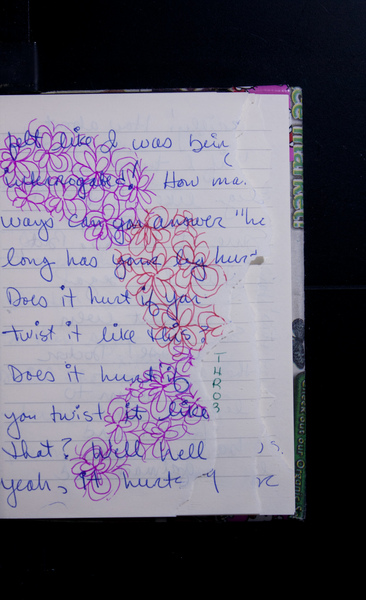 felt like I was bein
interrogated! How ma
ways can you answer "h
long has your leg hurt
Does it hurt if you
twist it like this?
Does it hurt if
you twist it like
that? Well hell
yeah, it hurts
THRO3